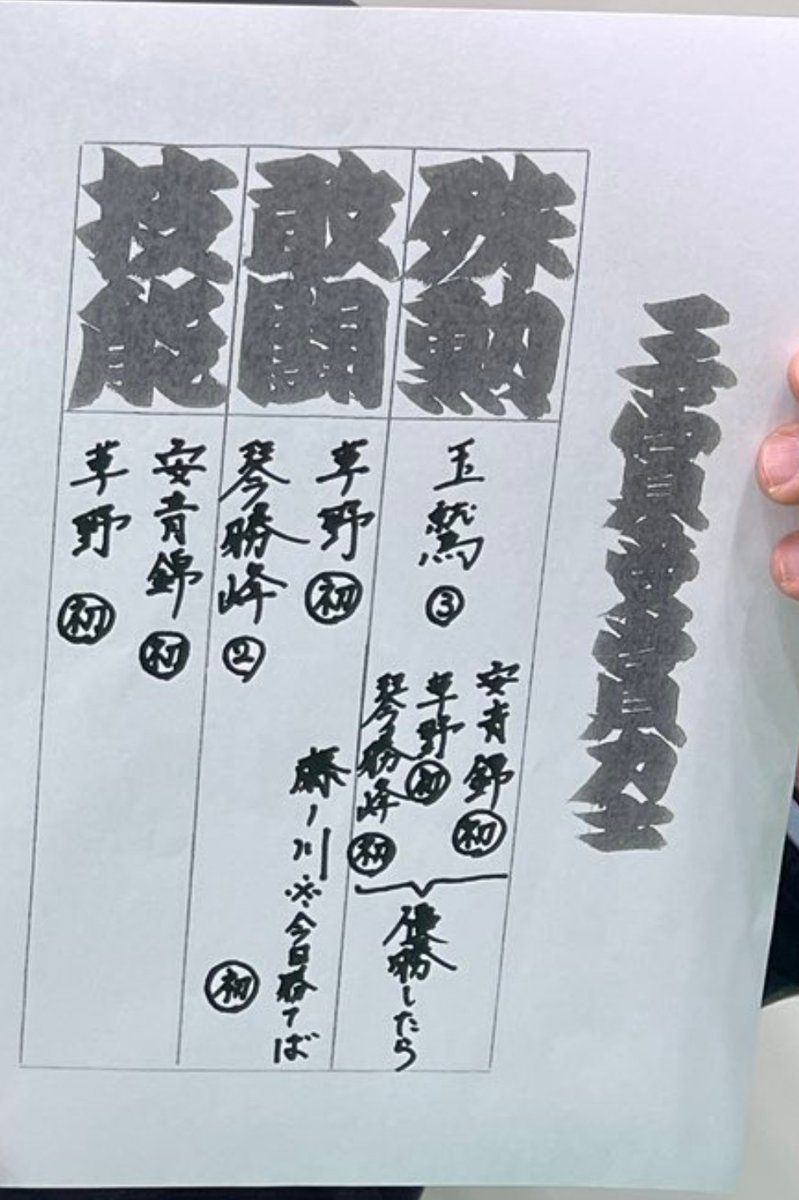 三賞受賞力士
殊勲
玉鷲 ③
安青錦 初
草野 初
琴勝峰 初
優勝したら
敢闘
草野 初
琴勝峰 ②
藤ノ川 ※今日勝てば
初
技能
安青錦 初
草野 初